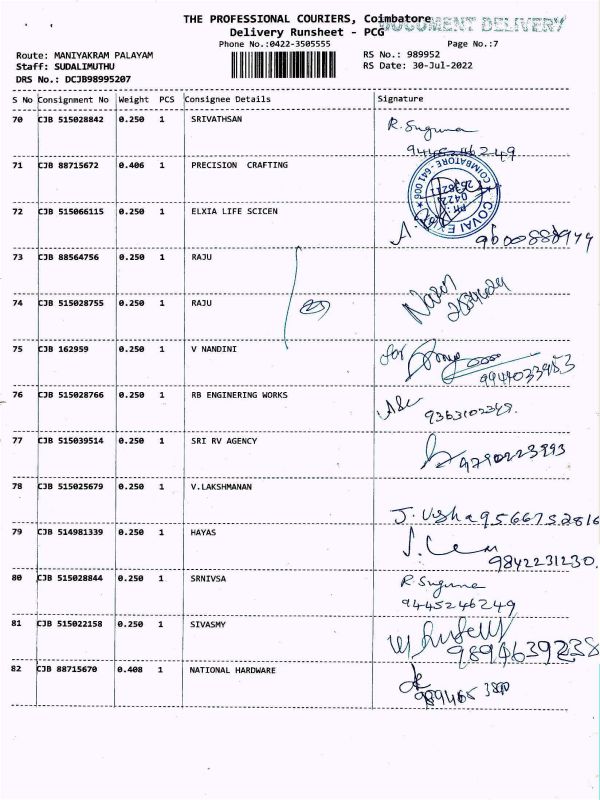 THE PROFESSIONAL COURIERS, Coimbatore
DOCUMENT DELIVERY
Delivery Runsheet - PCG
Phone No.:0422-3505555
Page No.:7
Route: MANIYAKRAM PALAYAM
RS No.: 989952
Staff: SUDALIMUTHU
RS Date: 30-Jul-2022
DRS No.: DCJB98995207
S No Consignment No Weight PCS Consignee Details Signature
70 CJB 515028842 0.250 1 SRIVATHSAN R. Suguna
9445246249
71 CJB 88715672 0.406 1 PRECISION CRAFTING
COIMBATORE - 641 006
PH: 0422
COVAI
72 CJB 515066115 0.250 1 ELXIA LIFE SCICEN
73 CJB 88564756 0.250 1 RAJU
74 CJB 515028755 0.250 1 RAJU
75 CJB 162959 0.250 1 V NANDINI for
76 CJB 515028766 0.250 1 RB ENGINERING WORKS
9363102349.
77 CJB 515039514 0.250 1 SRI RV AGENCY
9790223993
78 CJB 515025679 0.250 1 V.LAKSHMANAN
J. Usha 9566752816
79 CJB 514981339 0.250 1 HAYAS
9842231230.
80 CJB 515028844 0.250 1 SRNIVSA R. Suguna
9445246249
81 CJB 515022158 0.250 1 SIVASMY
9894639238
82 CJB 88715670 0.408 1 NATIONAL HARDWARE